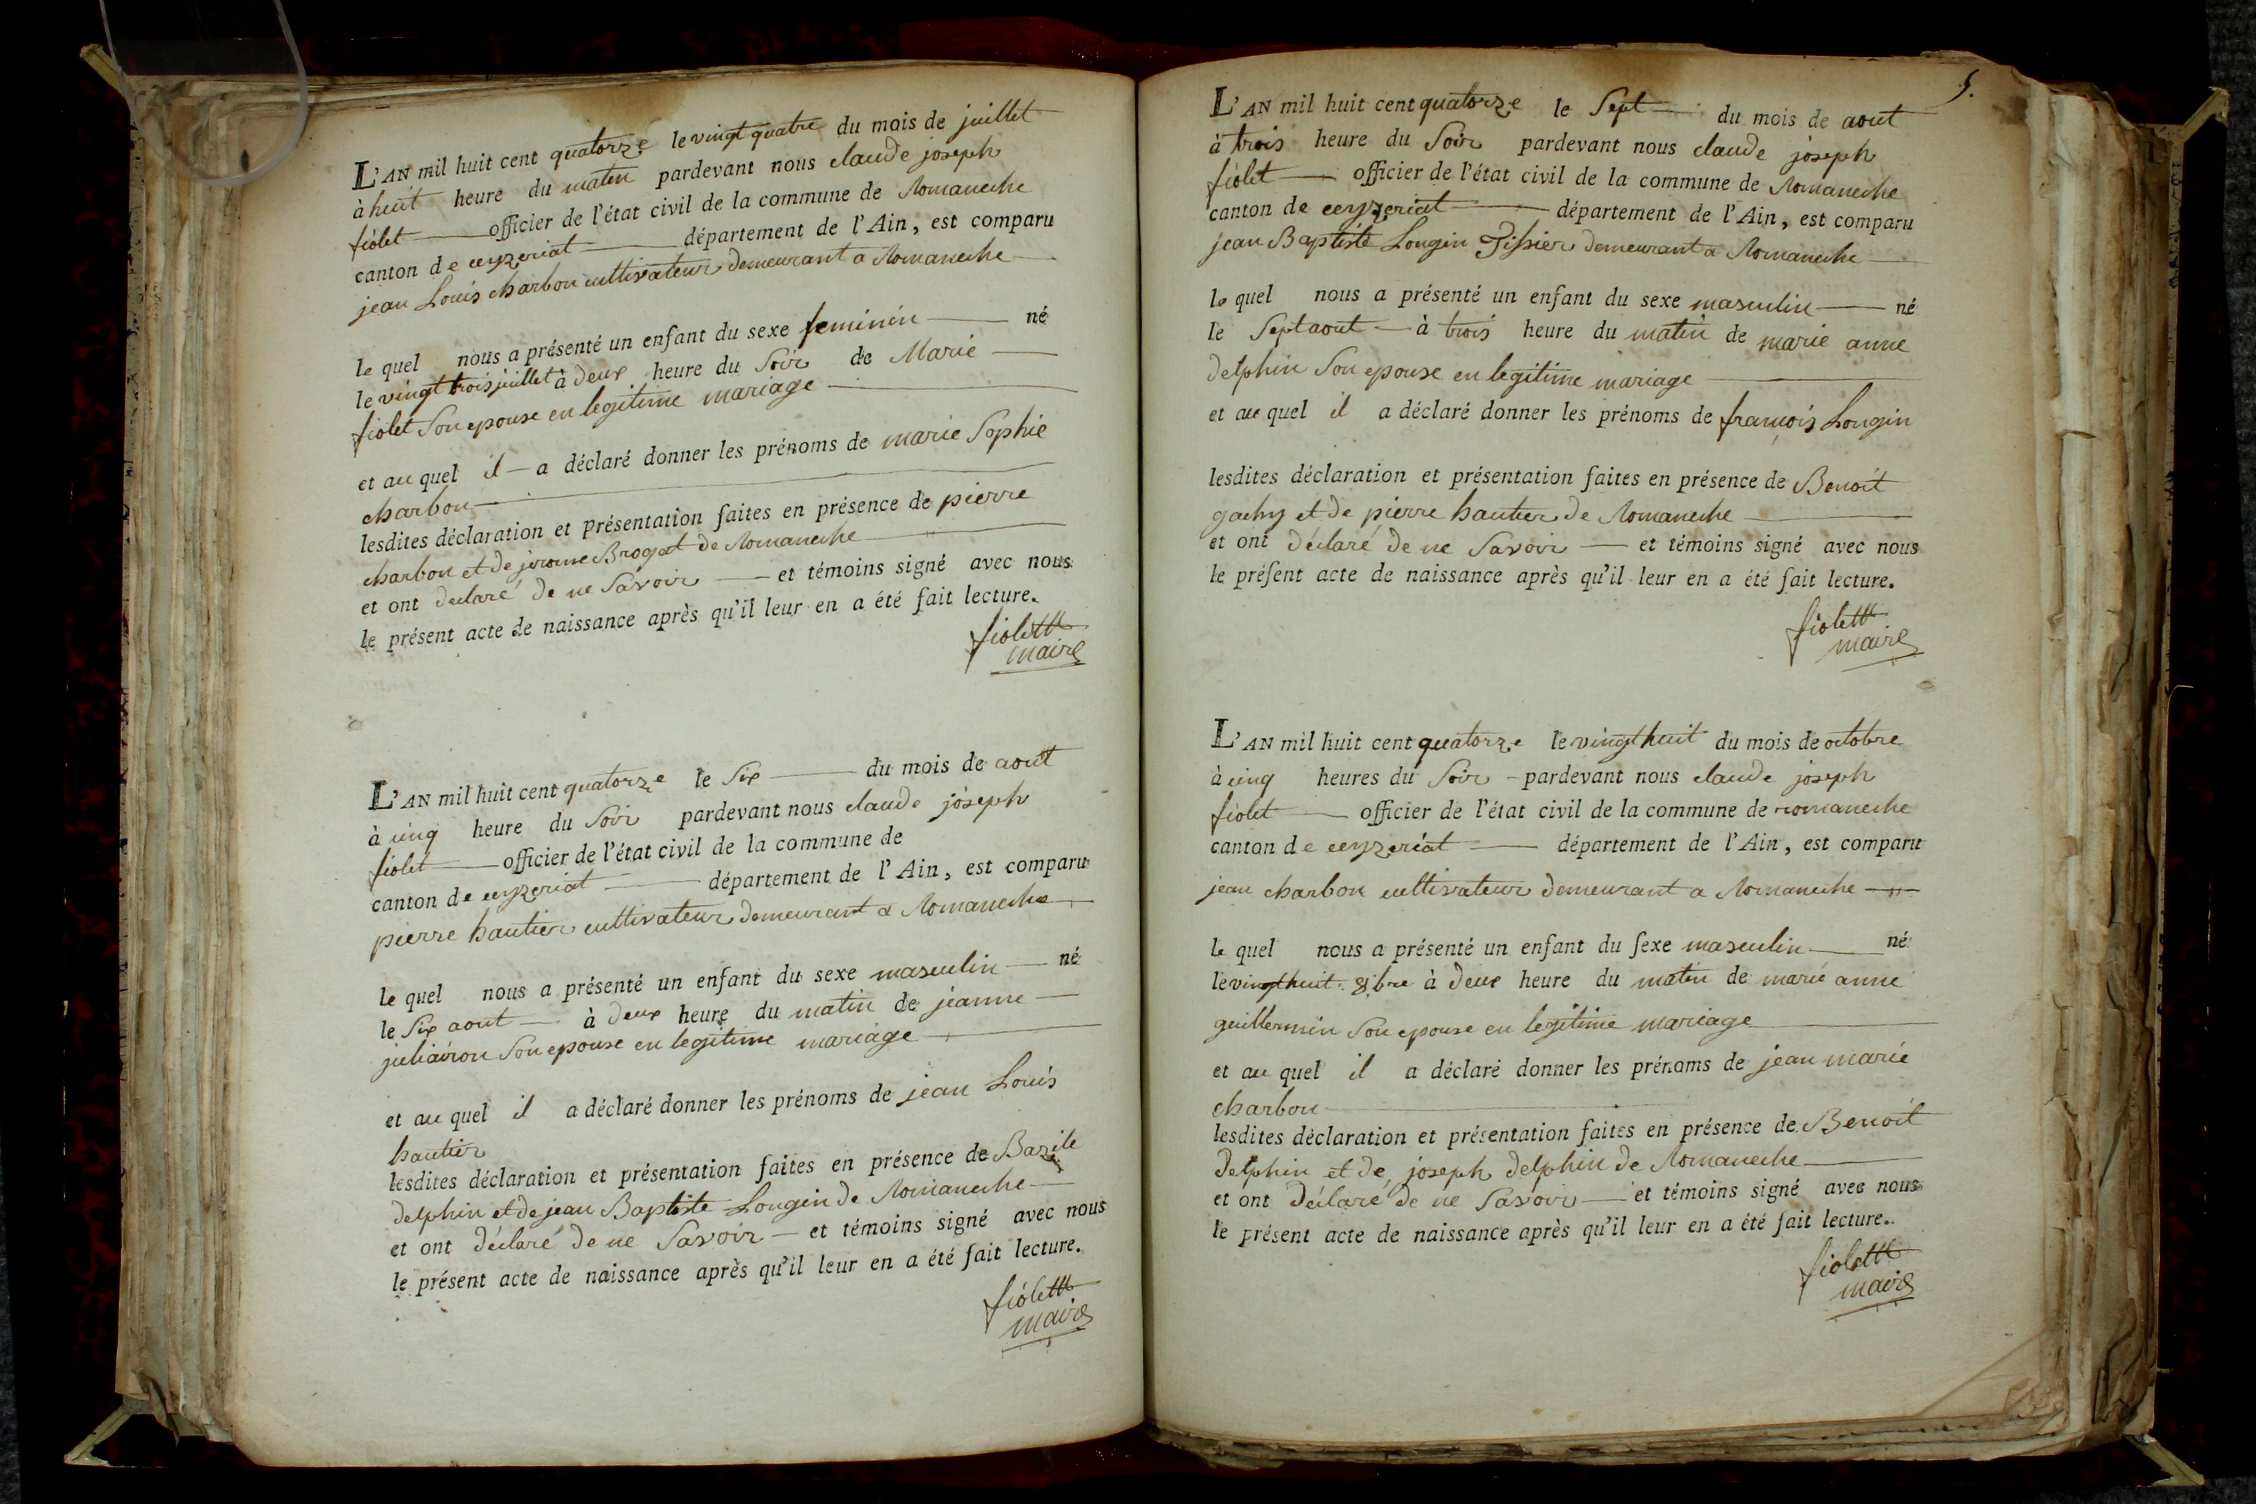 L'AN mil huit cent quatorze le vingt quatre du mois de juillet
à huit heure du matin pardevant nous claude joseph
fiolet officier de l'état civil de la commune de Romaneche
canton de ceyzeriat département de l'Ain, est comparu
jean Louis charbon cultivateur demeurant a Romaneche
le quel nous a présenté un enfant du sexe feminin né
le vingt trois juillet à deux heure du Soir de Marie
fiolet Son epouse en legitime mariage
et au quel il a déclaré donner les prénoms de marie Sophie
charbon
lesdites déclaration et présentation faites en présence de pierre
charbon et de jerome Brogat de Romaneche
et ont declaré de ne Savoir et témoins signé avec nous
le présent acte de naissance après qu'il leur en a été fait lecture.
fiolet
maire
L'AN mil huit cent quatorze le Six du mois de aout
à cinq heure du Soir pardevant nous claude joseph
fiolet officier de l'état civil de la commune de
canton de ceyzeriat département de l'Ain, est comparu
pierre hautier cultivateur demeurant a Romaneche
le quel nous a présenté un enfant du sexe masculin né
le Six aout à deux heure du matin de jeanne
Son epouse en legitime mariage
et au quel il a déclaré donner les prénoms de jean Louis
hautier
lesdites déclaration et présentation faites en présence de Bazile
delphin et de jean Baptiste Longin de Romaneche
et ont déclaré de ne Savoir et témoins signé avec nous
le présent acte de naissance après qu'il leur en a été fait lecture.
fiolet
maire
5.
L'AN mil huit cent quatorze le Sept du mois de aout
à trois heure du Soir pardevant nous claude joseph
fiolet officier de l'état civil de la commune de Romaneche
canton de ceyzeriat département de l'Ain, est comparu
jean Baptiste Longin Tissier demeurant a Romaneche
le quel nous a présenté un enfant du sexe masculin né
le Sept aout à trois heure du matin de marie anne
delphin Son epouse en legitime mariage
et au quel il a déclaré donner les prénoms de françois Longin
lesdites déclaration et présentation faites en présence de Benoit
gachy et de pierre hautier de Romaneche
et ont déclaré de ne Savoir et témoins signé avec nous
le préſent acte de naissance après qu'il leur en a été fait lecture.
fiolet
maire
L'AN mil huit cent quatorze le vingt huit du mois de octobre
à cinq heures du Soir pardevant nous claude joseph
fiolet officier de l'état civil de la commune de romaneche
canton de ceyzeriat département de l'Ain, est comparu
jean charbon cultivateur demeurant a Romaneche
le quel nous a présenté un enfant du ſexe masculin né
le vingt huit 8bre à deux heure du matin de marie anne
guillermin Son epouse en legitime mariage
et au quel il a déclaré donner les prénoms de jean marie
charbon
lesdites déclaration et présentation faites en présence de Benoit
delphin et de joseph delphin de Romaneche
et ont déclaré de ne Savoir et témoins signé avec nous
le présent acte de naissance après qu'il leur en a été fait lecture.
fiolet
maire